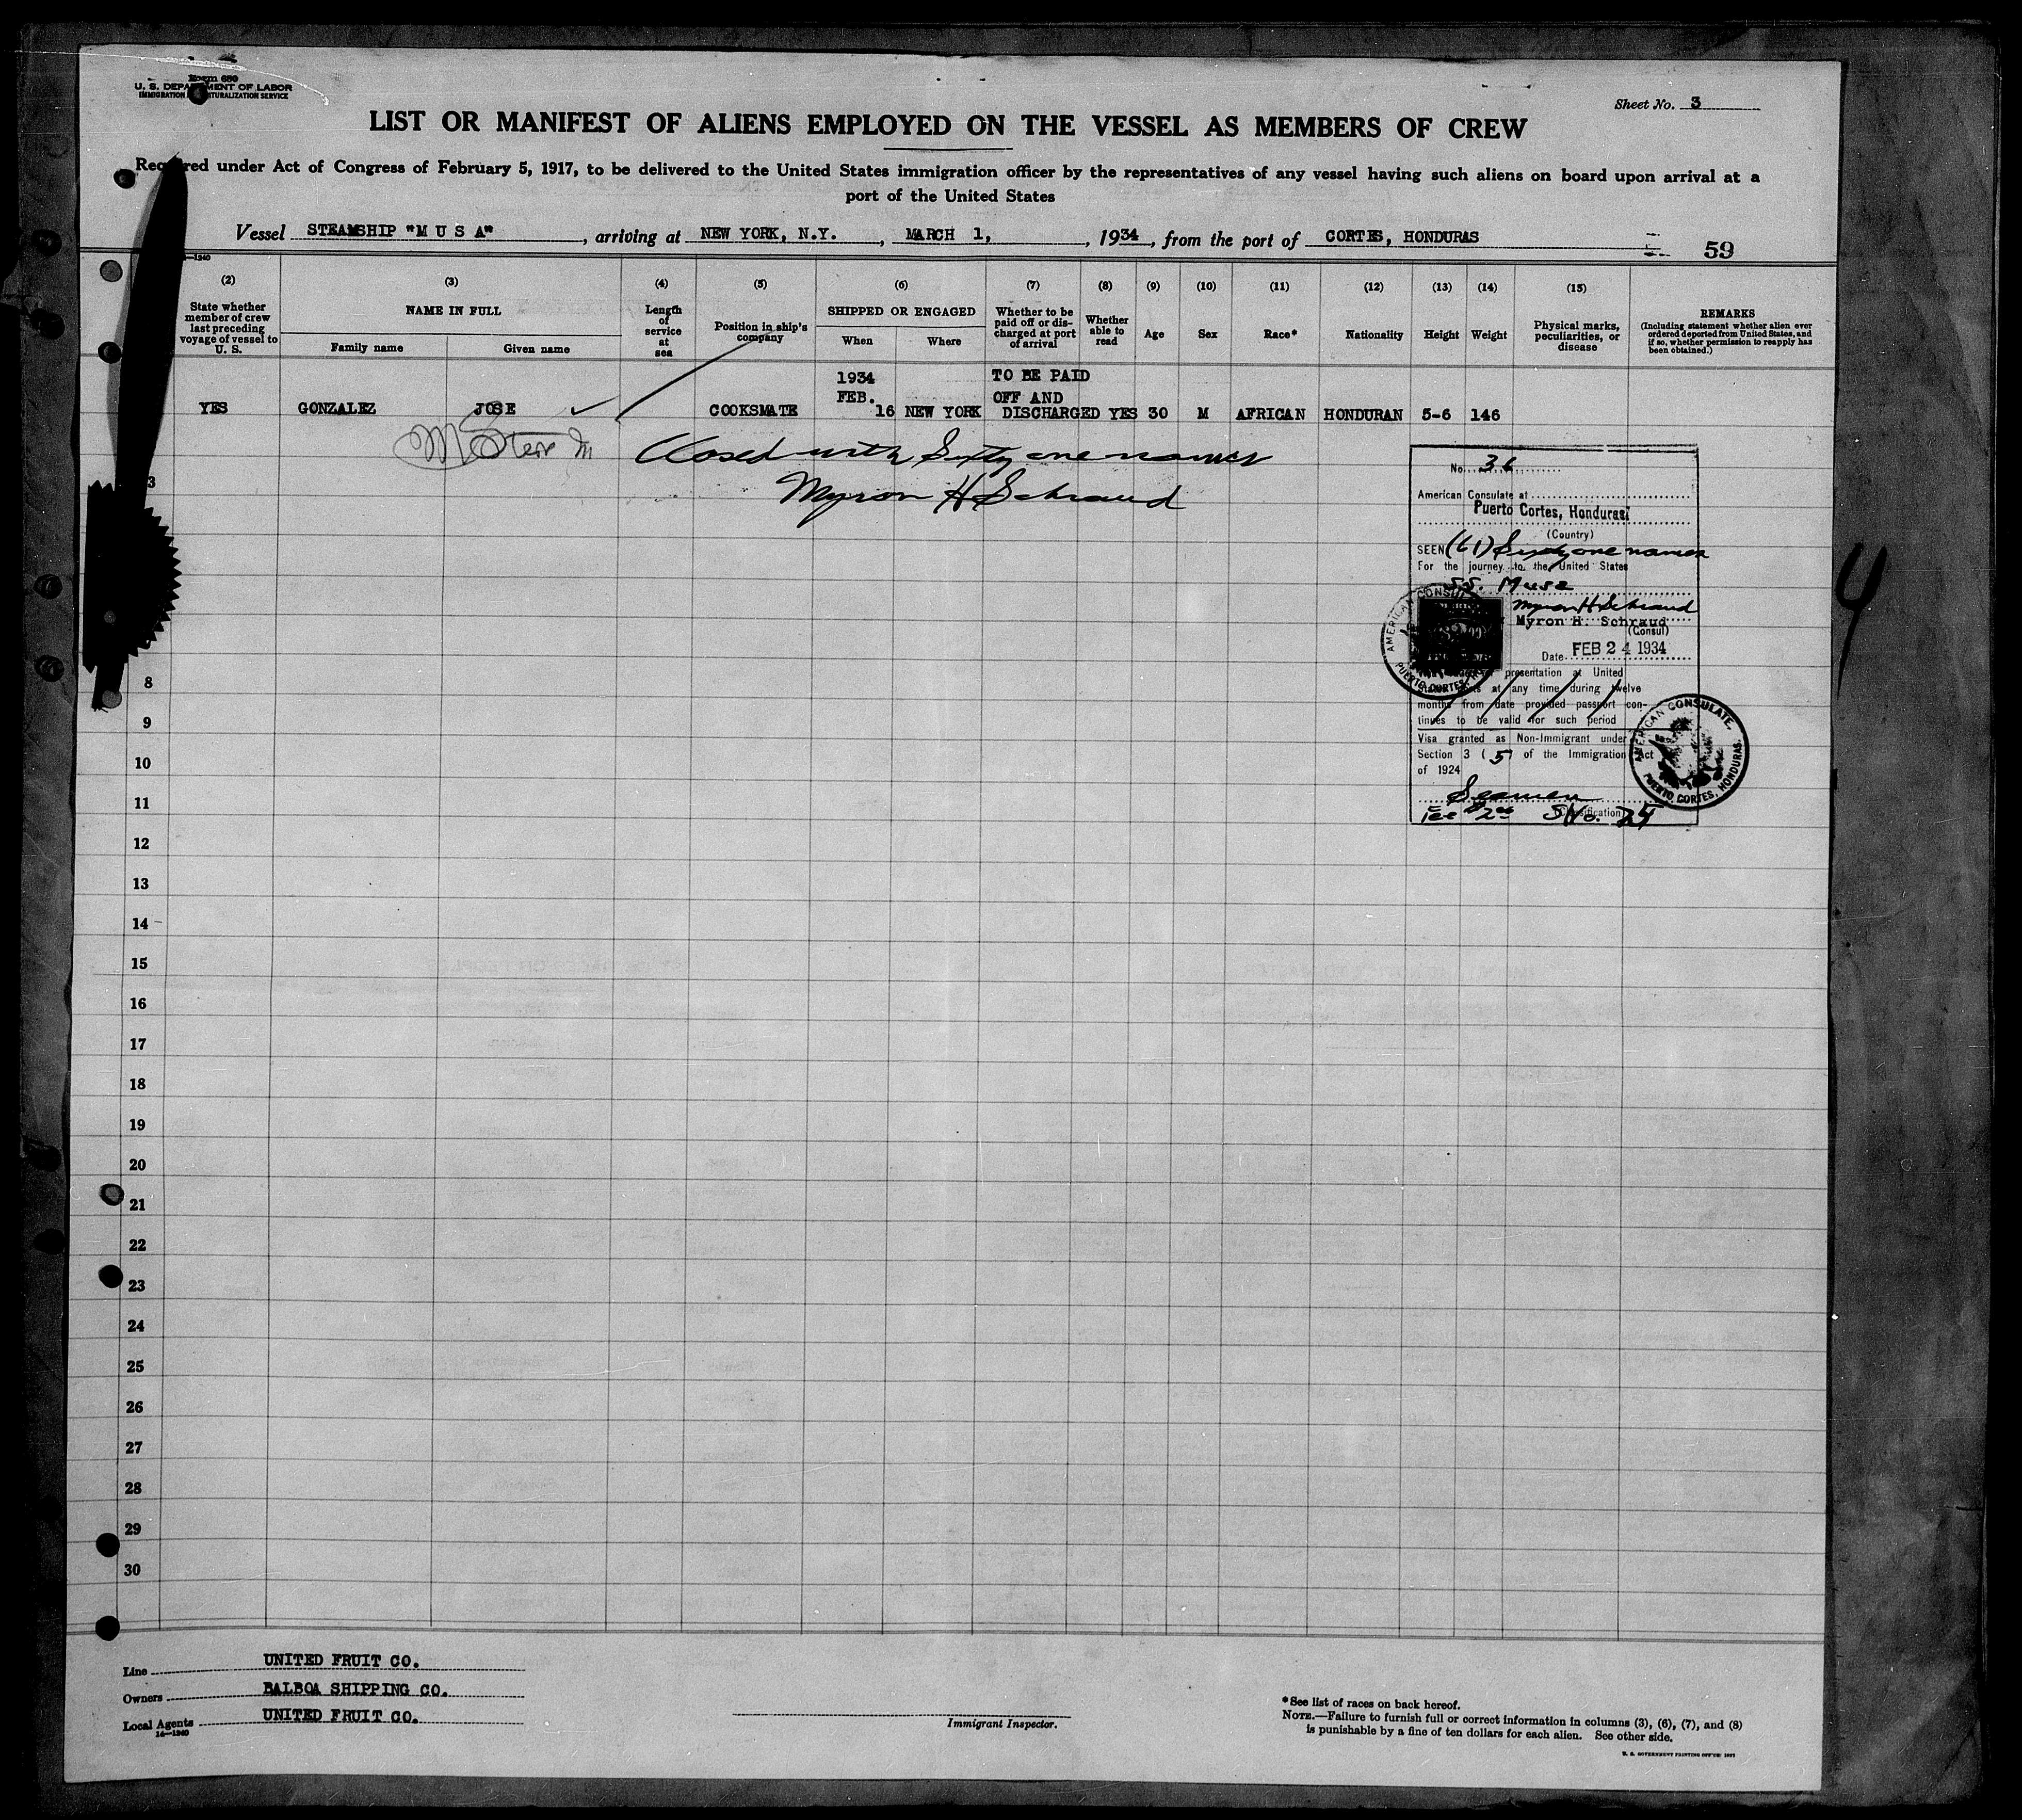 Form 680
U. S. DEPA MENT OF LABOR
IMMIGRATION TURALIZATION SERVICE
Sheet No. 3
LIST OR MANIFEST OF ALIENS EMPLOYED ON THE VESSEL AS MEMBERS OF CREW
Req red under Act of Congress of February 5, 1917, to be delivered to the United States immigration officer by the representatives of any vessel having such aliens on board upon arrival at a
port of the United States
Vessel STEAMSHIP "M U S A", arriving at NEW YORK, N.Y., MARCH 1, , 1934, from the port of CORTES, HONDURAS
59
(2) (3) (4) (5) (6) (7) (8) (9) (10) (11) (12) (13) (14) (15)
State whether member of crew last preceding voyage of vessel to U. S.
NAME IN FULL
Family name Given name
Length of service at sea
Position in ship's company
SHIPPED OR ENGAGED
When Where
Whether to be paid off or discharged at port of arrival
Whether able to read
Age Sex Race* Nationality Height Weight
Physical marks, peculiarities, or disease
REMARKS
(Including statement whether alien ever ordered deported from United States, and if so, whether permission to reapply has been obtained.)
1934 TO BE PAID
FEB. OFF AND
YES GONZALEZ JOSE COOKSMATE 16 NEW YORK DISCHARGED YES 30 M AFRICAN HONDURAN 5-6 146
Closed with Sixty one names
Myron H Schraud
No. 36
American Consulate at
Puerto Cortes, Honduras
(Country)
SEEN (61) Sixty one names
For the journey to the United States
S.S. Musa
Myron H Schraud
Myron H. Schraud
(Consul)
Date FEB 24 1934
presentation at United
States ports at any time during twelve
months from date provided passport con-
tinues to be valid for such period
Visa granted as Non-Immigrant under
Section 3 (5) of the Immigration Act
of 1924
Seamen
(Classification)
Fee $2.00 SNo. 25
AMERICAN CONSULATE
PUERTO CORTES, HONDURAS.
4
3
8
9
10
11
12
13
14
15
16
17
18
19
20
21
22
23
24
25
26
27
28
29
30
Line UNITED FRUIT CO.
Owners BALBOA SHIPPING CO.
Local Agents UNITED FRUIT CO.
14—1940
Immigrant Inspector.
*See list of races on back hereof.
NOTE.—Failure to furnish full or correct information in columns (3), (6), (7), and (8)
is punishable by a fine of ten dollars for each alien. See other side.